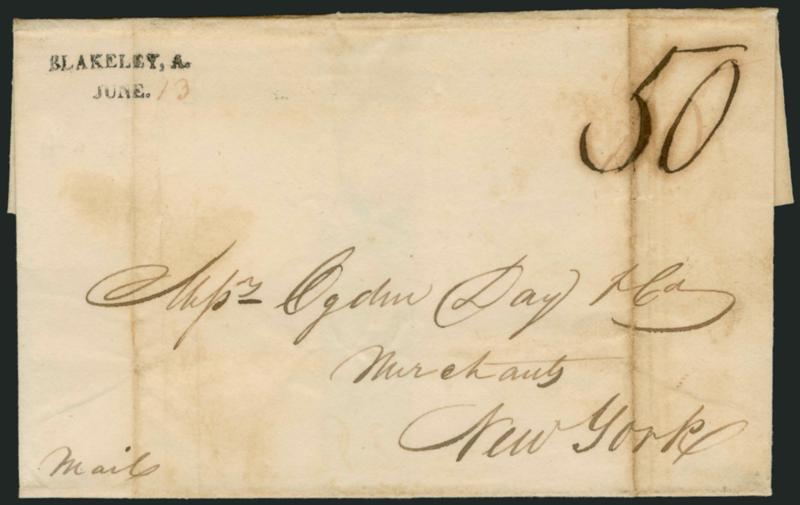 BLAKELEY, A.
JUNE. 13
50
Messrs Ogden Day & Co
Merchants
New York
Mail